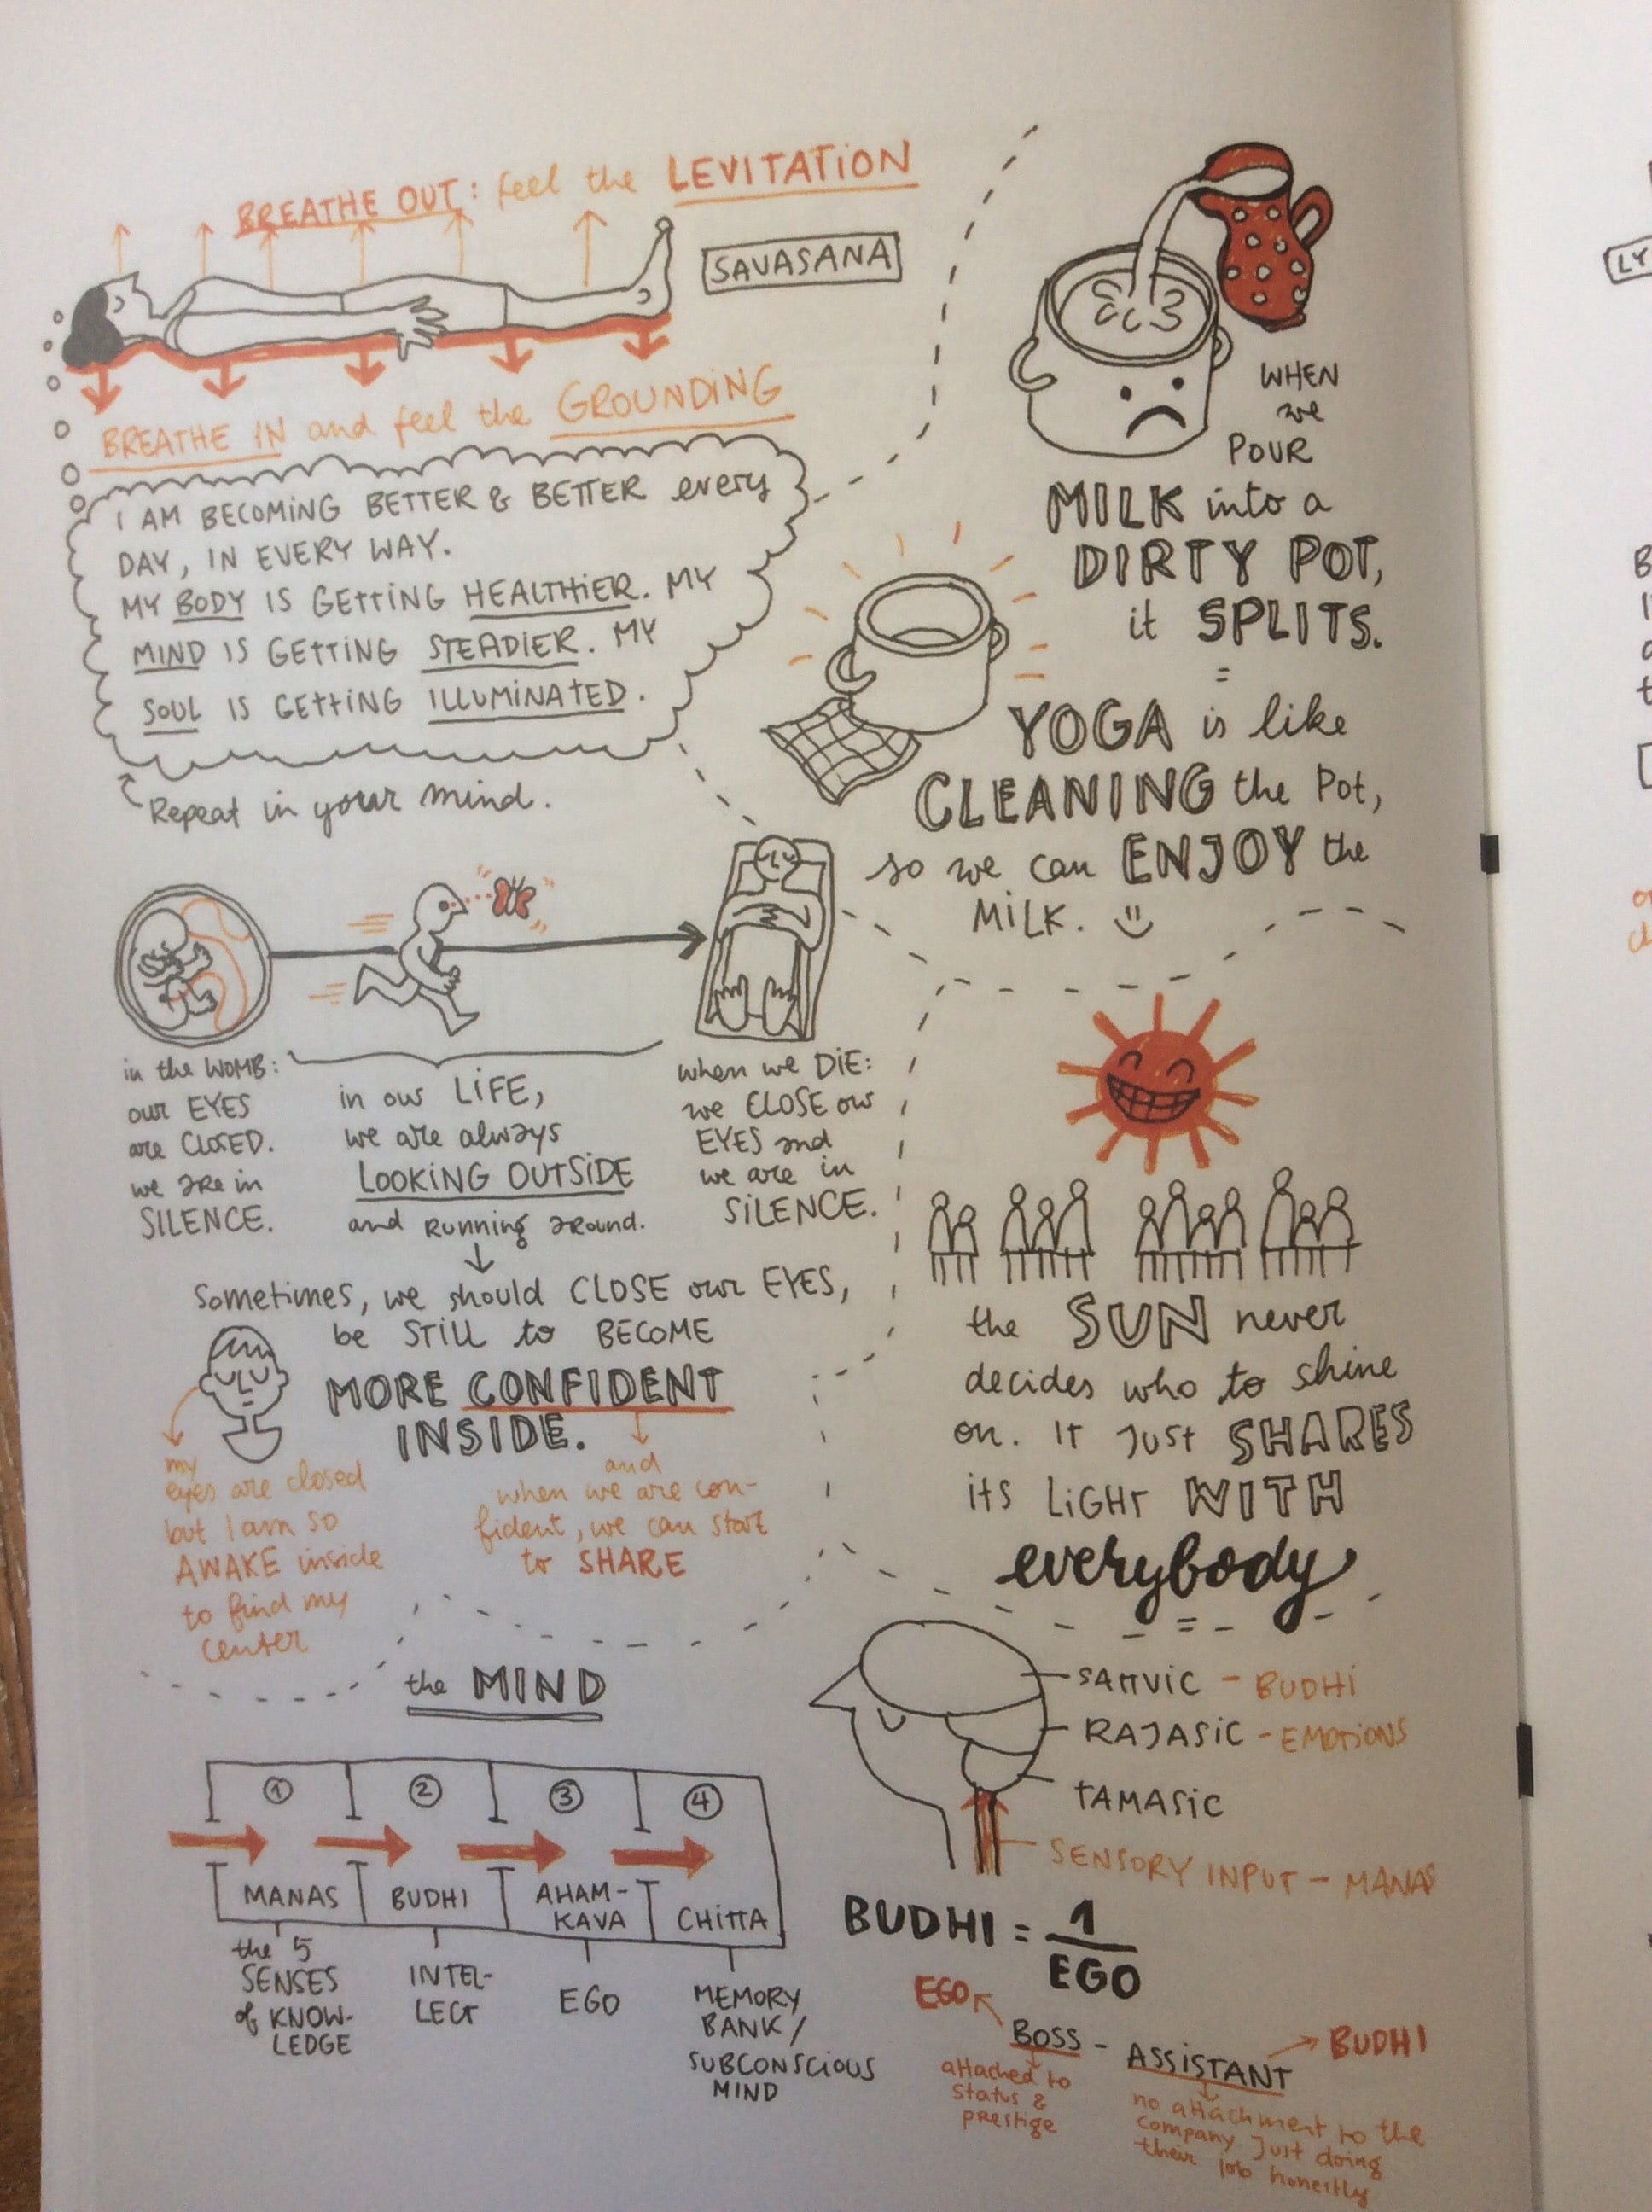 BREATHE OUT: feel the LEVITATION
SAVASANA
BREATHE IN and feel the GROUNDING
I AM BECOMING BETTER & BETTER every
DAY, IN EVERY WAY.
MY BODY IS GETTING HEALTHIER. MY
MIND IS GETTING STEADIER. MY
SOUL IS GETTING ILLUMINATED.
Repeat in your mind.
WHEN
we
POUR
MILK into a
DIRTY POT,
it SPLITS.
=
YOGA is like
CLEANING the Pot,
so we can ENJOY the
MILK. :)
in the WOMB:
our EYES
are CLOSED.
we are in
SILENCE.
in our LIFE,
we are always
LOOKING OUTSIDE
and RUNNING around.
when we DIE:
we CLOSE our
EYES and
we are in
SILENCE.
Sometimes, we should CLOSE our EYES,
be STILL to BECOME
MORE CONFIDENT
INSIDE.
my
eyes are closed
but I am so
AWAKE inside
to find my
center
and
when we are con-
fident, we can start
to SHARE
the SUN never
decides who to shine
on. IT JUST SHARES
its LIGHT WITH
everybody
=
the MIND
1
2
3
4
MANAS
BUDHI
AHAM-
KAVA
CHITTA
the 5
SENSES
of KNOW-
LEDGE
INTEL-
LECT
EGO
MEMORY
BANK/
SUBCONSCIOUS
MIND
SATTVIC - BUDHI
RAJASIC - EMOTIONS
TAMASIC
SENSORY INPUT - MANAS
BUDHI = 1
EGO
EGO
BOSS - ASSISTANT
BUDHI
attached to
status &
prestige
no attachment to the
company. Just doing
their job honestly